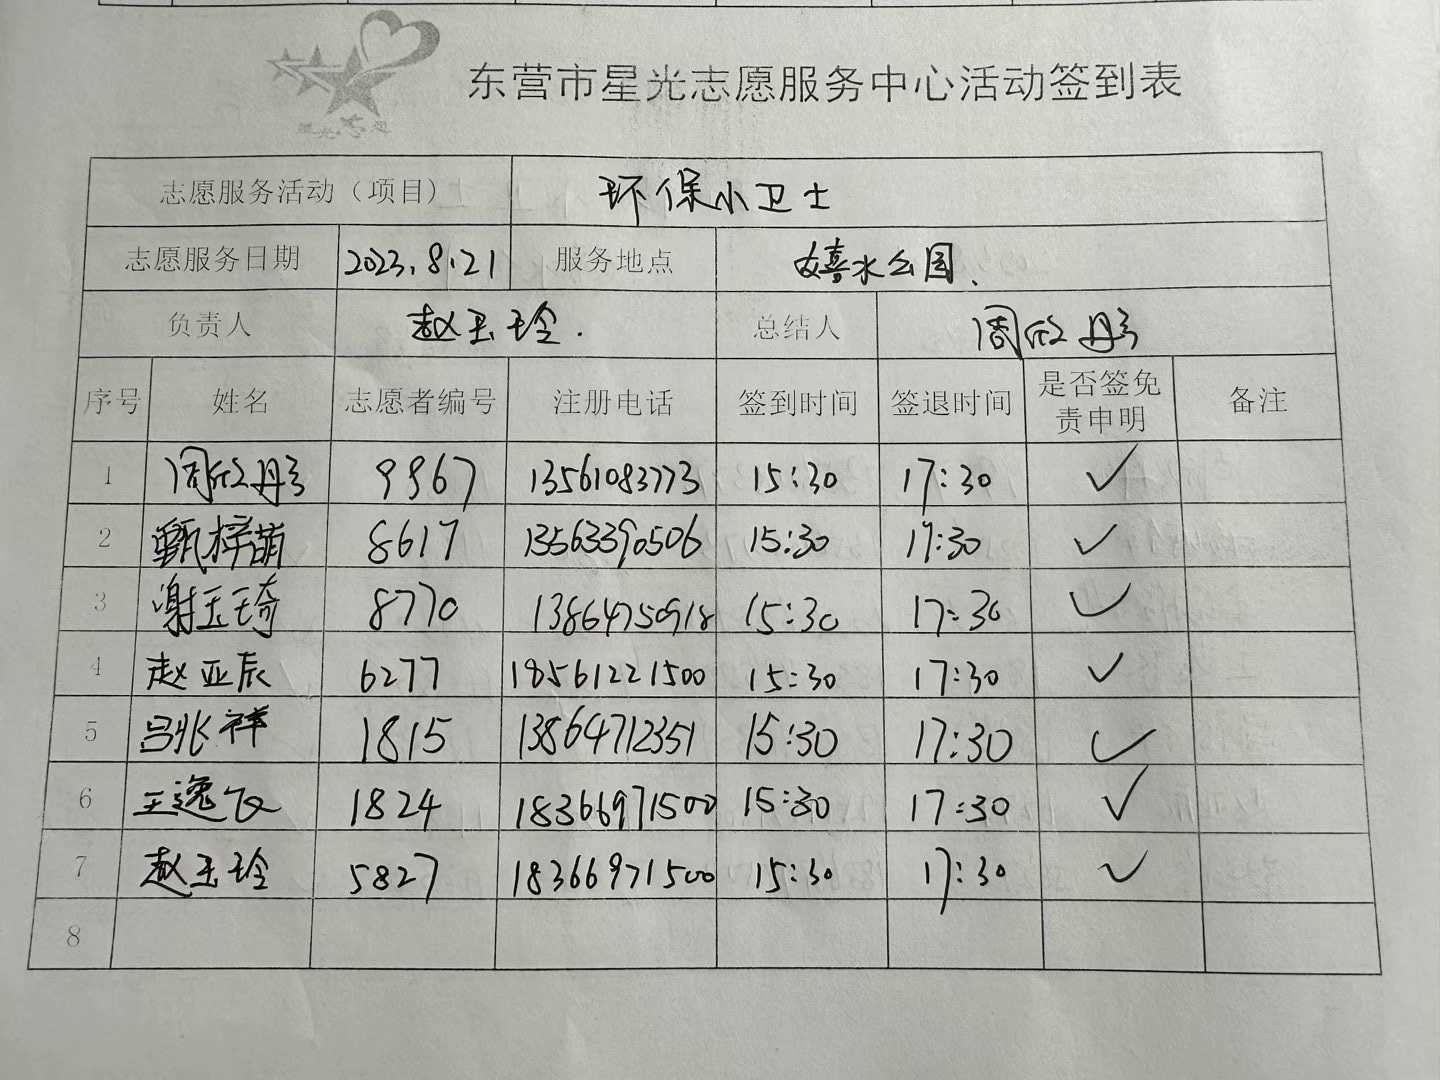 星光志愿
东营市星光志愿服务中心活动签到表
志愿服务活动（项目） 环保小卫士
志愿服务日期 2023.8.21 服务地点 嬉水公园.
负责人 赵玉玲. 总结人 周欣彤
序号 姓名 志愿者编号 注册电话 签到时间 签退时间 是否签免责申明 备注
1 周欣彤 9967 13561083773 15:30 17:30 ✓
2 甄梓萌 8617 13563390506 15:30 17:30 ✓
3 谢玉琦 8770 13864750918 15:30 17:30 ✓
4 赵亚辰 6277 18561221500 15:30 17:30 ✓
5 吕兆祥 1815 13864712351 15:30 17:30 ✓
6 王逸 1824 18366971500 15:30 17:30 ✓
7 赵玉玲 5827 18366971500 15:30 17:30 ✓
8